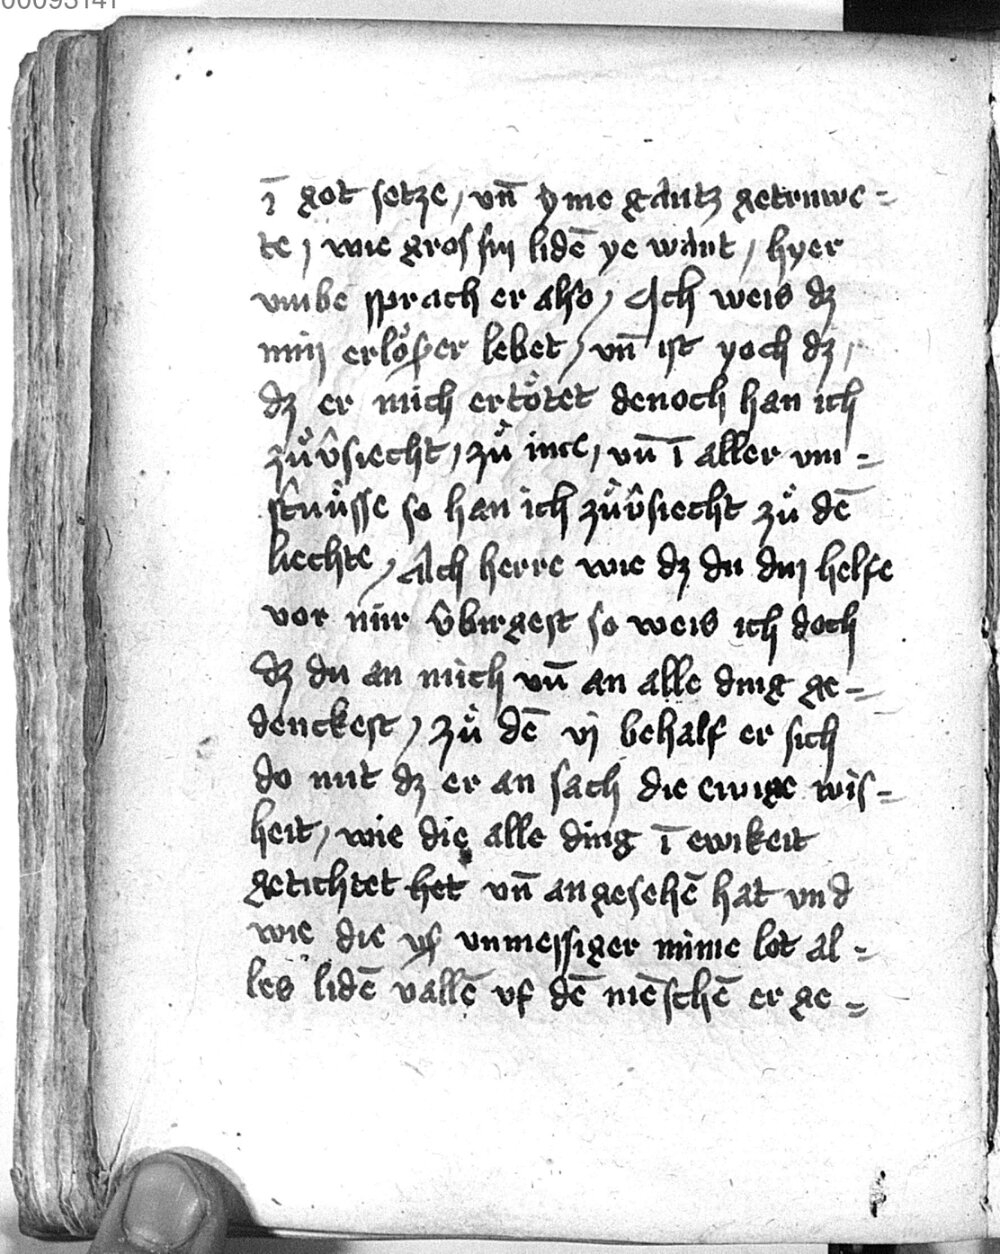 00093141
ī got setze / vn̄ yme gantz getruwe=
te / wie gros sin lidē ye wart / hyer
vmbe sprach er also / Ich weis dz
min erlöser lebet / vn̄ ist yoch dz /
dz er mich ertötet denoch han ich
zův̂siecht / zů ime / vn̄ ī aller vin=
st̂nüsse so han ich zův̂siecht zů dē
liechte / Ach herre wie dz du din helfe
vor mir v̂birgest so weis ich doch
dz du an mich vn̄ an alle ding ge=
denckest / zů dē vj behalf er sich
do mit dz er an sach die ewige wis=
heit / wie die alle ding ī ewikeit
getichtet het vn̄ angesehē hat vnd
wie die vs vnmessiger mīnne lot al=
les lidē vallē vf dē mēschē er ge=